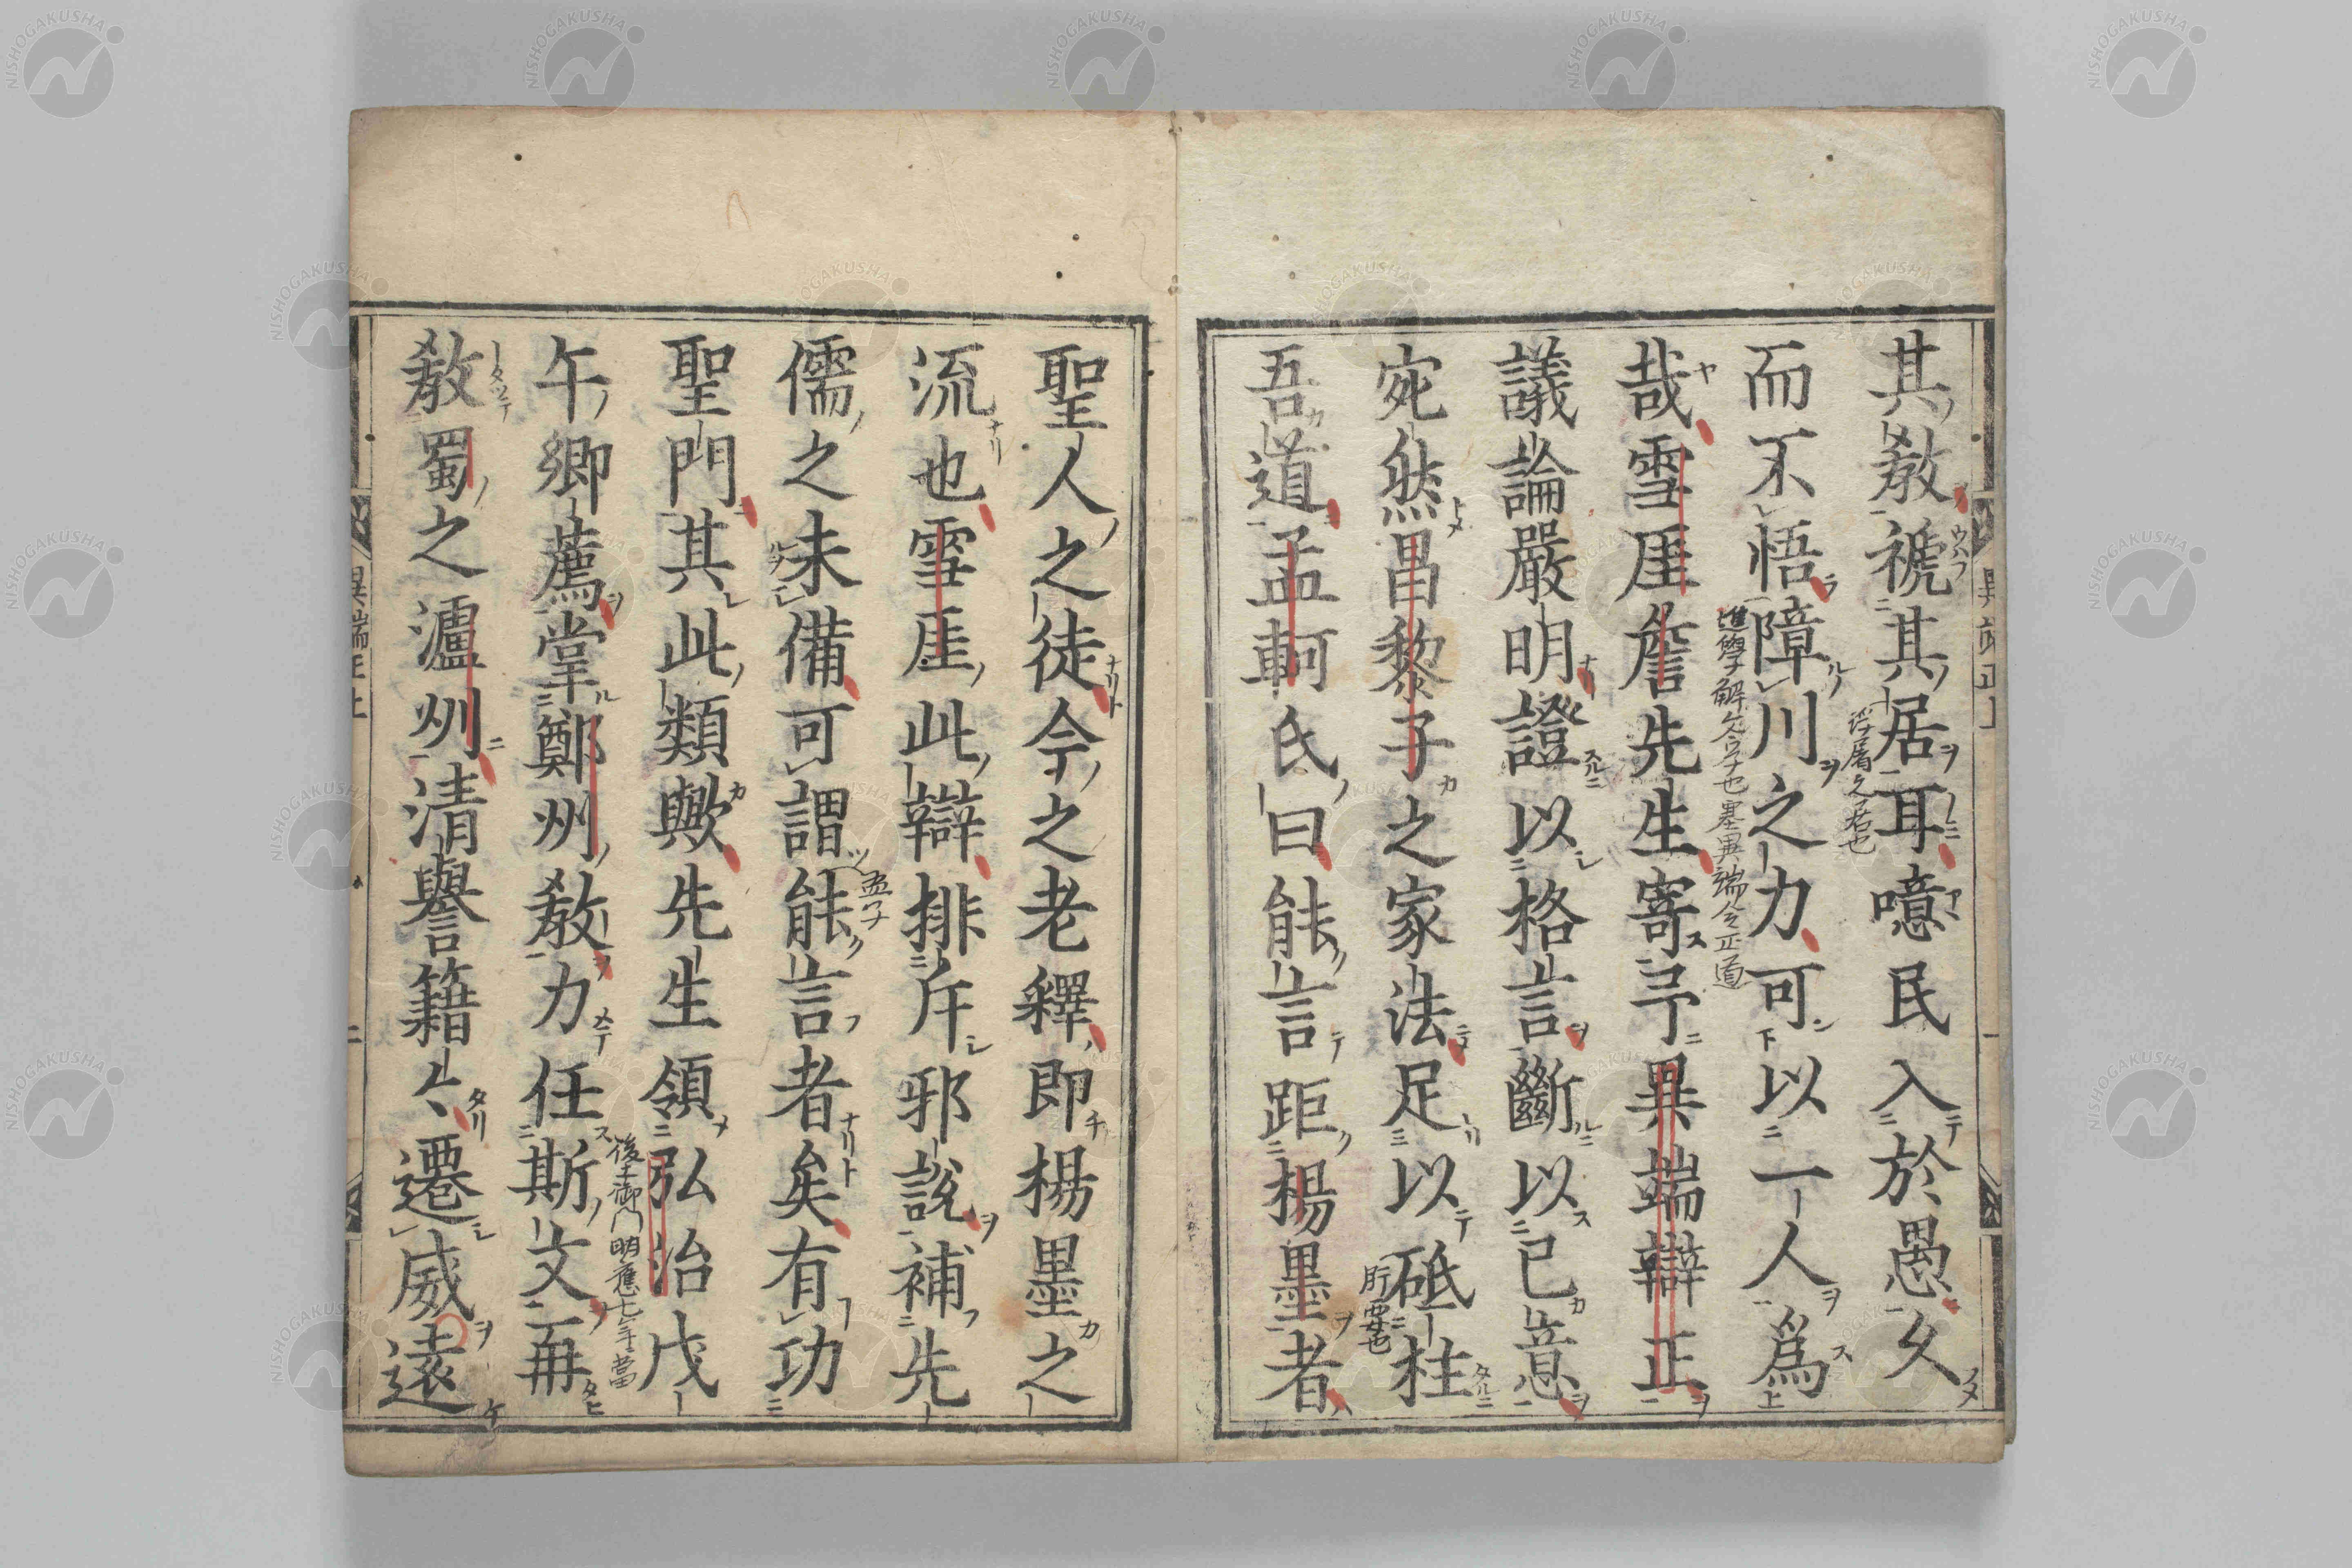 其教褫其居耳噫民入於愚久
而不悟障川之力可以一人爲
哉雪厓詹先生寄予異端辯正
議論嚴明證以格言斷以已意
宛然昌黎子之家法足以砥柱
吾道孟軻氏曰能言距楊墨者
聖人之徒今之老釋即楊墨之
流也雪厓此辯排斥邪説補先
儒之未備可謂能言者矣有功
聖門其此類歟先生領弘治戊
午鄉薦掌鄭州教力任斯文再
教蜀之瀘州清譽籍〻遷威遠
浮屠之居也
進學解久字也塞異端令正道
肝要也
孟子
後土御門明應七年當
異端正上
NISHOGAKUSHA